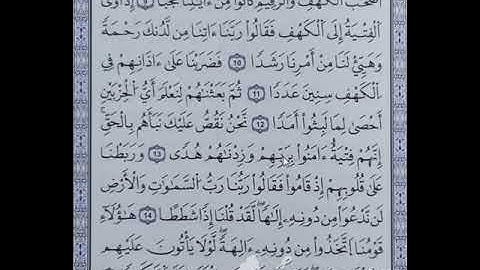 أَصْحَٰبَ ٱلْكَهْفِ وَٱلرَّقِيمِ كَانُوا۟ مِنْ ءَايَٰتِنَا عَجَبًا ٩ إِذْ أَوَى
ٱلْفِتْيَةُ إِلَى ٱلْكَهْفِ فَقَالُوا۟ رَبَّنَآ ءَاتِنَا مِن لَّدُنكَ رَحْمَةً
وَهَيِّئْ لَنَا مِنْ أَمْرِنَا رَشَدًا ١٠ فَضَرَبْنَا عَلَىٰٓ ءَاذَانِهِمْ فِى
ٱلْكَهْفِ سِنِينَ عَدَدًا ١١ ثُمَّ بَعَثْنَٰهُمْ لِنَعْلَمَ أَىُّ ٱلْحِزْبَيْنِ
أَحْصَىٰ لِمَا لَبِثُوٓا۟ أَمَدًا ١٢ نَّحْنُ نَقُصُّ عَلَيْكَ نَبَأَهُم بِٱلْحَقِّ ۚ
إِنَّهُمْ فِتْيَةٌ ءَامَنُوا۟ بِرَبِّهِمْ وَزِدْنَٰهُمْ هُدًى ١٣ وَرَبَطْنَا
عَلَىٰ قُلُوبِهِمْ إِذْ قَامُوا۟ فَقَالُوا۟ رَبُّنَا رَبُّ ٱلسَّمَٰوَٰتِ وَٱلْأَرْضِ
لَن نَّدْعُوَا۟ مِن دُونِهِۦٓ إِلَٰهًا ۖ لَّقَدْ قُلْنَآ إِذًا شَطَطًا ١٤ هَٰٓؤُلَآءِ
قَوْمُنَا ٱتَّخَذُوا۟ مِن دُونِهِۦٓ ءَالِهَةً ۖ لَّوْلَا يَأْتُونَ عَلَيْهِم